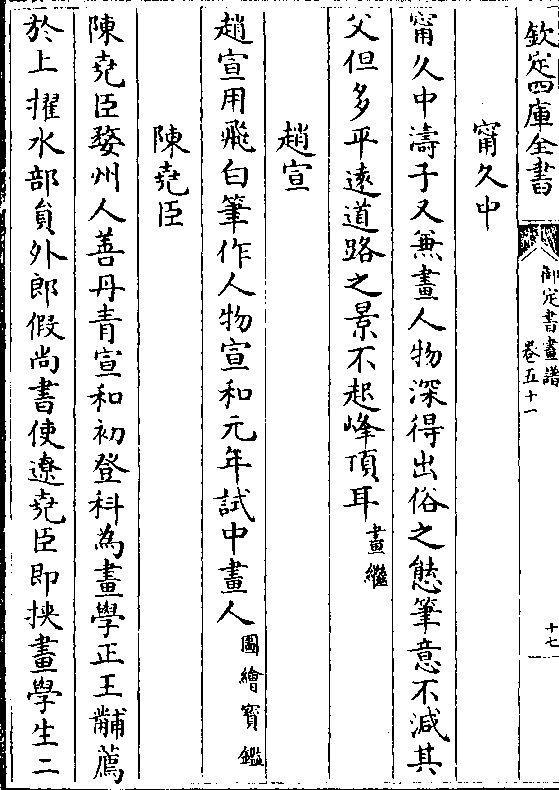 欽定四庫全書
御定書畫譜
卷五十一
十七
甯久中
甯久中濤子又兼畫人物深得出俗之態筆意不減其
父但多平遠道路之景不起峰頂耳畫繼
趙宣
趙宣用飛白筆作人物宣和元年試中畫人圖繪寶鑑
陳堯臣
陳堯臣婺州人善丹青宣和初登科為畫學正王黼薦
於上擢水部員外郎假尚書使遼堯臣即挾畫學生二